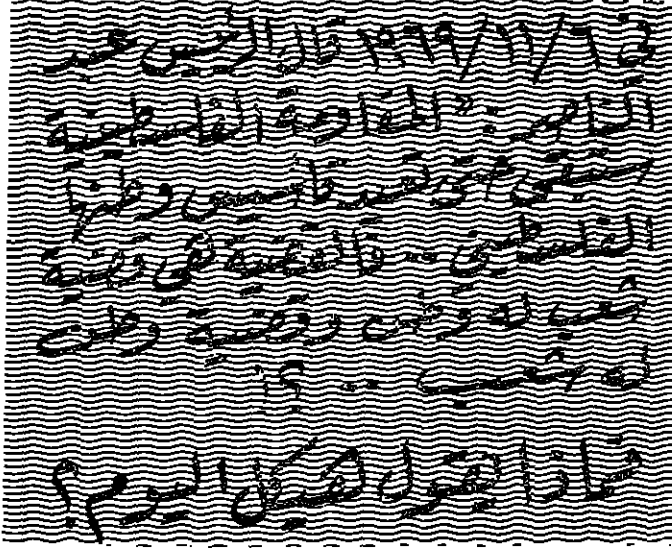 في ٦/١١/١٩٦٩ قال الرئيس عبد
الناصر : " المقاومة الفلسطينية
ستبقى حتى وطنها
الفلسطيني .. فالقضية هي قضية
شعب له وطن وقضية وطن
له شعب .. ؟!
فماذا نقول لهيكل اليوم ؟